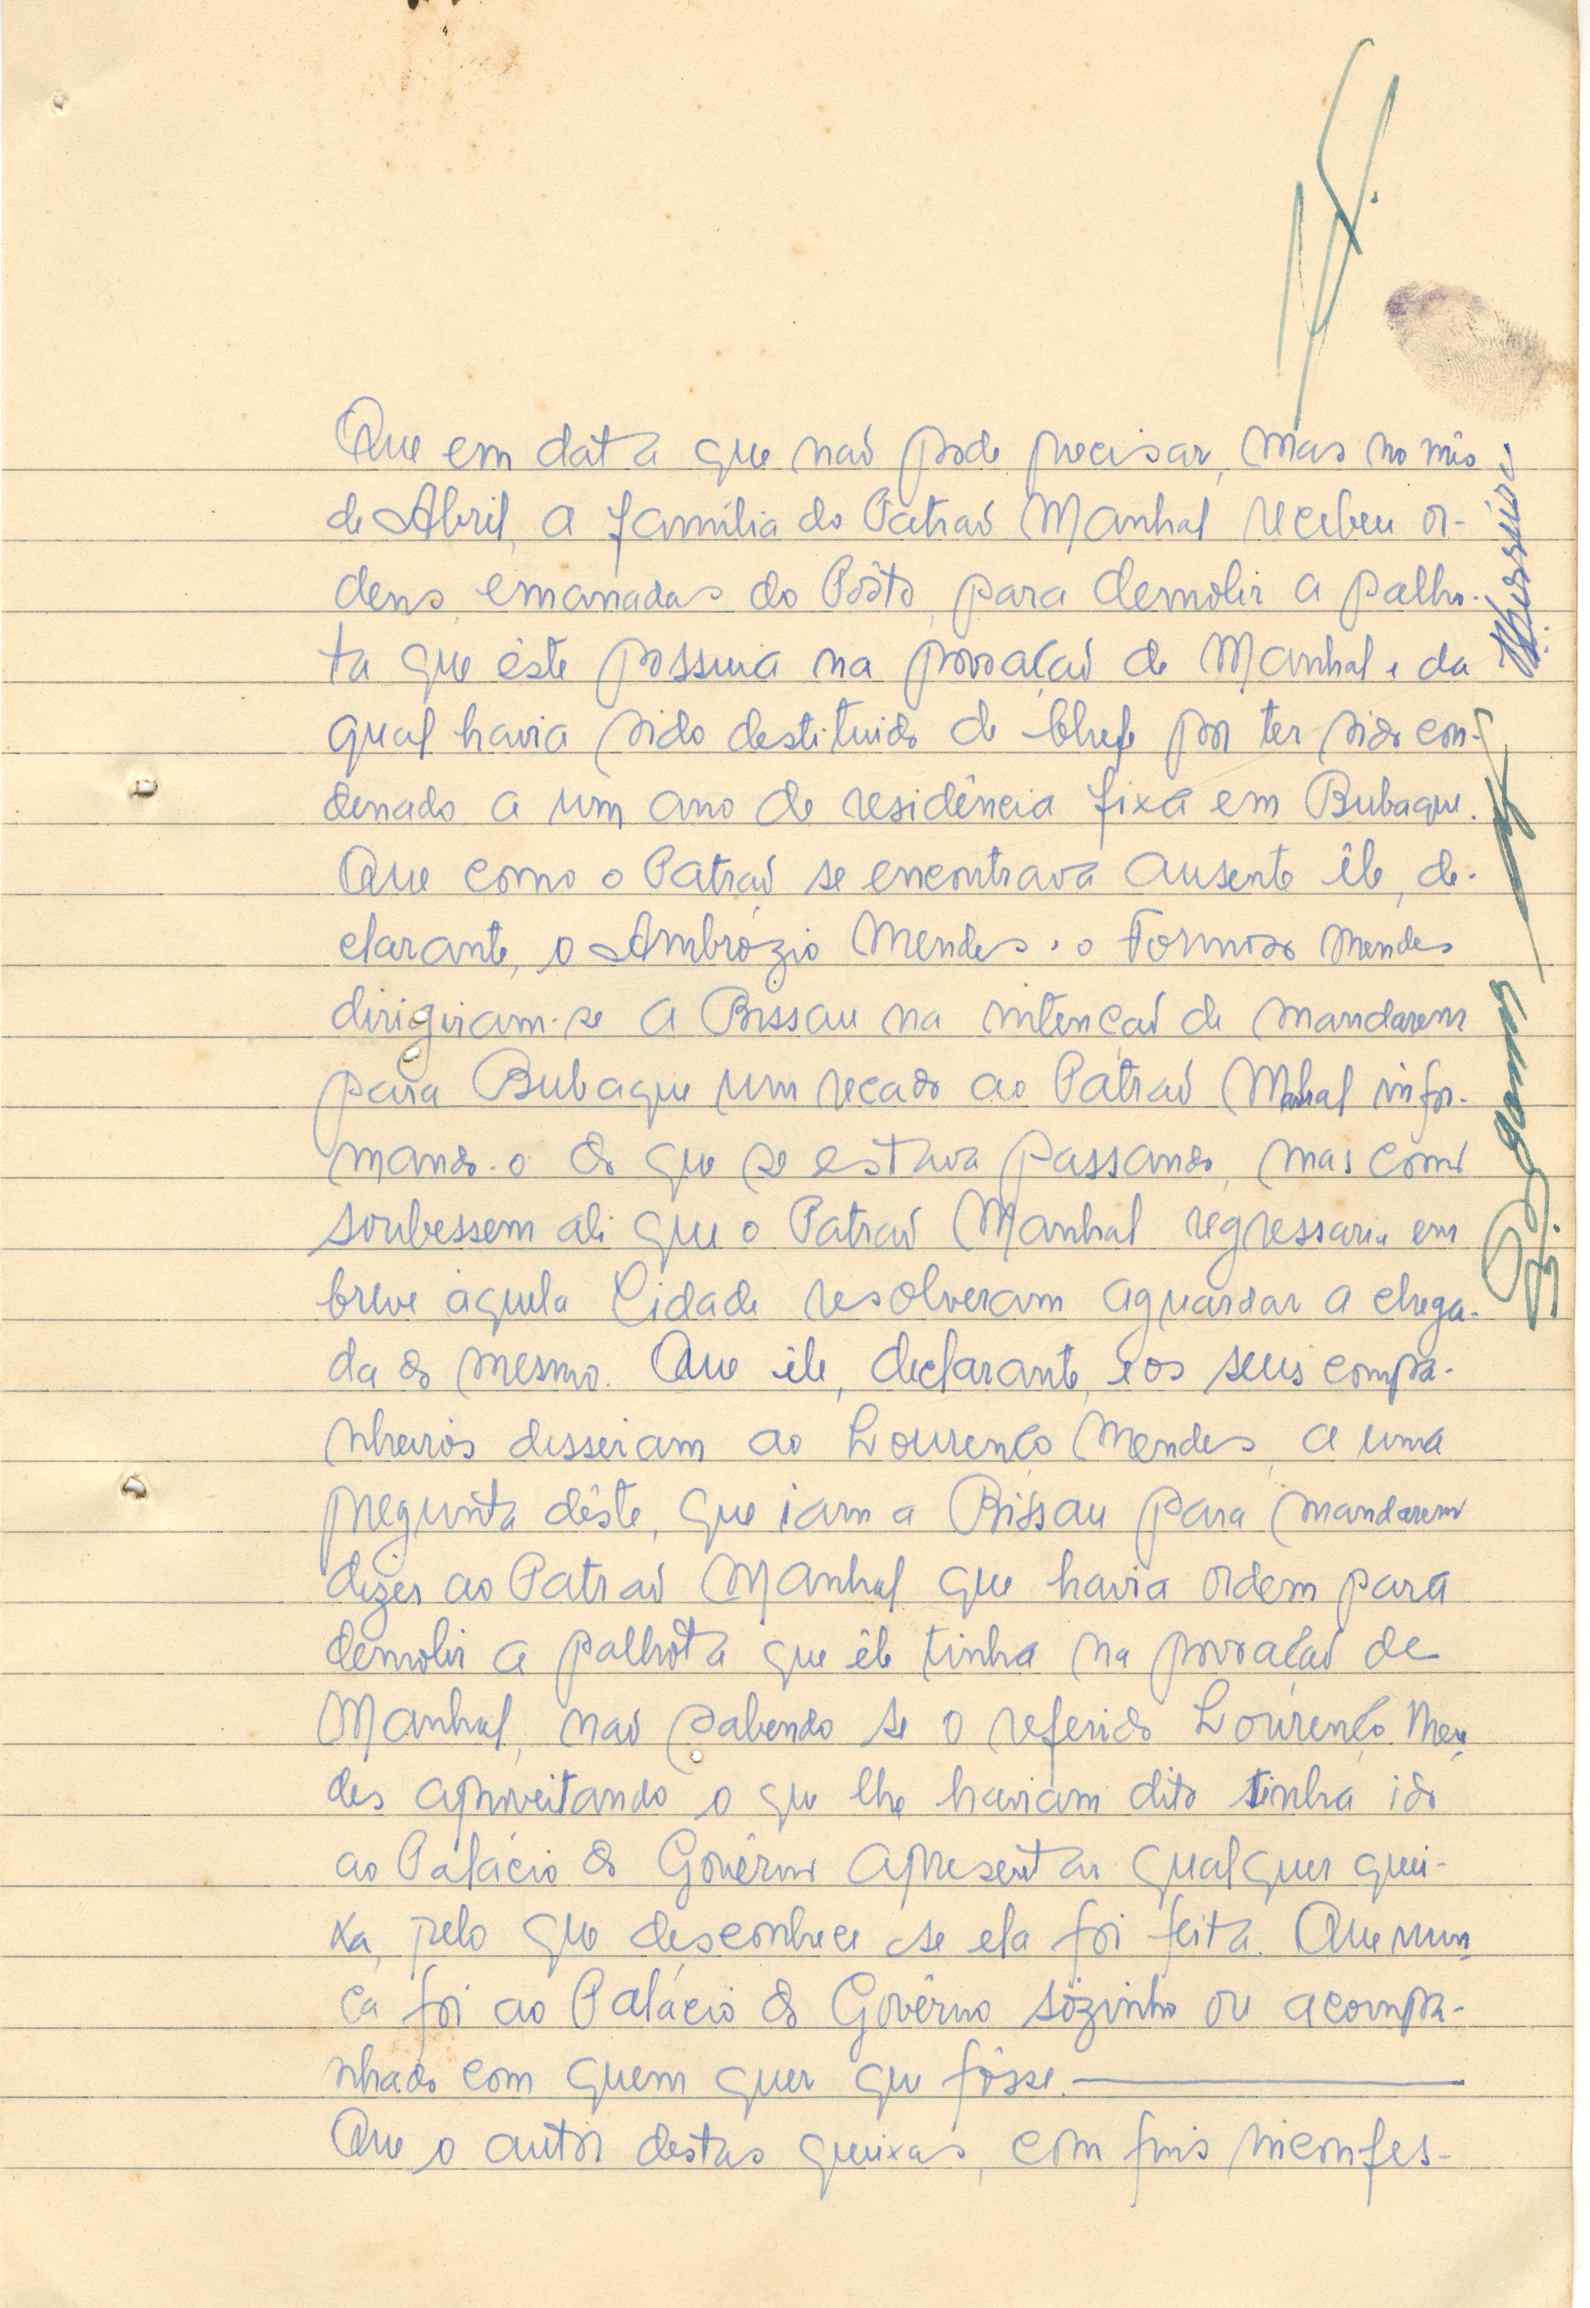 Que em data que não pode precisar, mas no mês
de Abril, a família do Patrão Manhal recebeu or-
dens, emanadas do Pôsto, para demolir a palho-
ta que êste possuia na povoação de Manhal e da
qual havia sido destituido de Chefe por ter sido con-
denado a um ano de residência fixa em Bubaque.
Que como o Patrão se encontrava ausente êle, de-
clarante, o Ambrózio Mendes e o Formoso Mendes
dirigiram-se a Bissau na intenção de mandarem
para Bubaque um recado ao Patrão Manhal infor-
mando-o do que se estava passando, mas como
soubessem ali que o Patrão Manhal regressaria em
breve àquela Cidade resolveram aguardar a chega-
da do mesmo. Que êle, declarante, e os seus compa-
nheiros disseram ao Lourenço Mendes, a uma
pregunta dêste, que iam a Bissau para mandarem
dizer ao Patrão Manhal que havia ordem para
demolir a palhota que êle tinha na povoação de
Manhal, não sabendo se o referido Lourenço Men-
des aproveitando o que lhe haviam dito tinha ido
ao Palácio do Govêrno apresentar qualquer quei-
xa, pelo que desconhece se ela foi feita. Que nun-
ca foi ao Palácio do Govêrno sòzinho ou acompa-
nhado com quem quer que fôsse.
Que o autor destas queixas, com fins inconfes-